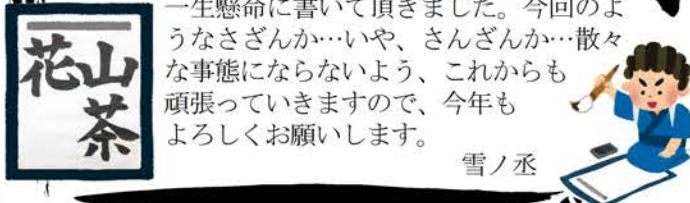 山茶
花
一生懸命に書いて頂きました。今回のよ
うなさざんか…いや、さんざんか…散々
な事態にならないよう、これからも
頑張っていきますので、今年も
よろしくお願いします。
雪ノ丞